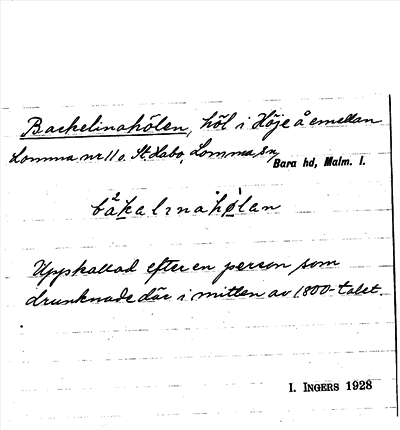 Backelinahölen, höl i Höje å emellan
Lomma nr 11 o. St. Habo, Lomma sn,
Bara hd, Malm. l.
båkalinahølan
Uppkallad efter en person som
drunknade där i mitten av 1800-talet.
I. INGERS 1928